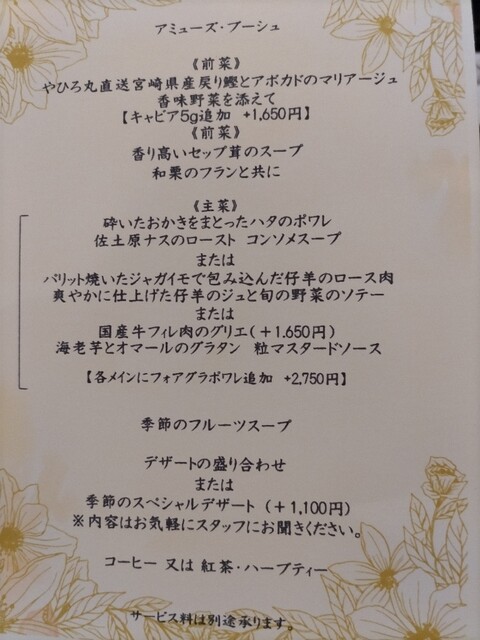 アミューズ・ブーシュ
《前菜》
やひろ丸直送宮崎県産戻り鰹とアボカドのマリアージュ
香味野菜を添えて
【キャビア5g追加 +1,650円】
《前菜》
香り高いセップ茸のスープ
和栗のフランと共に
《主菜》
砕いたおかきをまとったハタのポワレ
佐土原ナスのロースト コンソメスープ
または
パリット焼いたジャガイモで包み込んだ仔羊のロース肉
爽やかに仕上げた仔羊のジュと旬の野菜のソテー
または
国産牛フィレ肉のグリエ(+1.650円)
海老芋とオマールのグラタン 粒マスタードソース
【各メインにフォアグラポワレ追加 +2,750円】
季節のフルーツスープ
デザートの盛り合わせ
または
季節のスペシャルデザート (+1,100円)
※内容はお気軽にスタッフにお聞きください。
コーヒー 又は 紅茶・ハーブティー
サービス料は別途承ります。